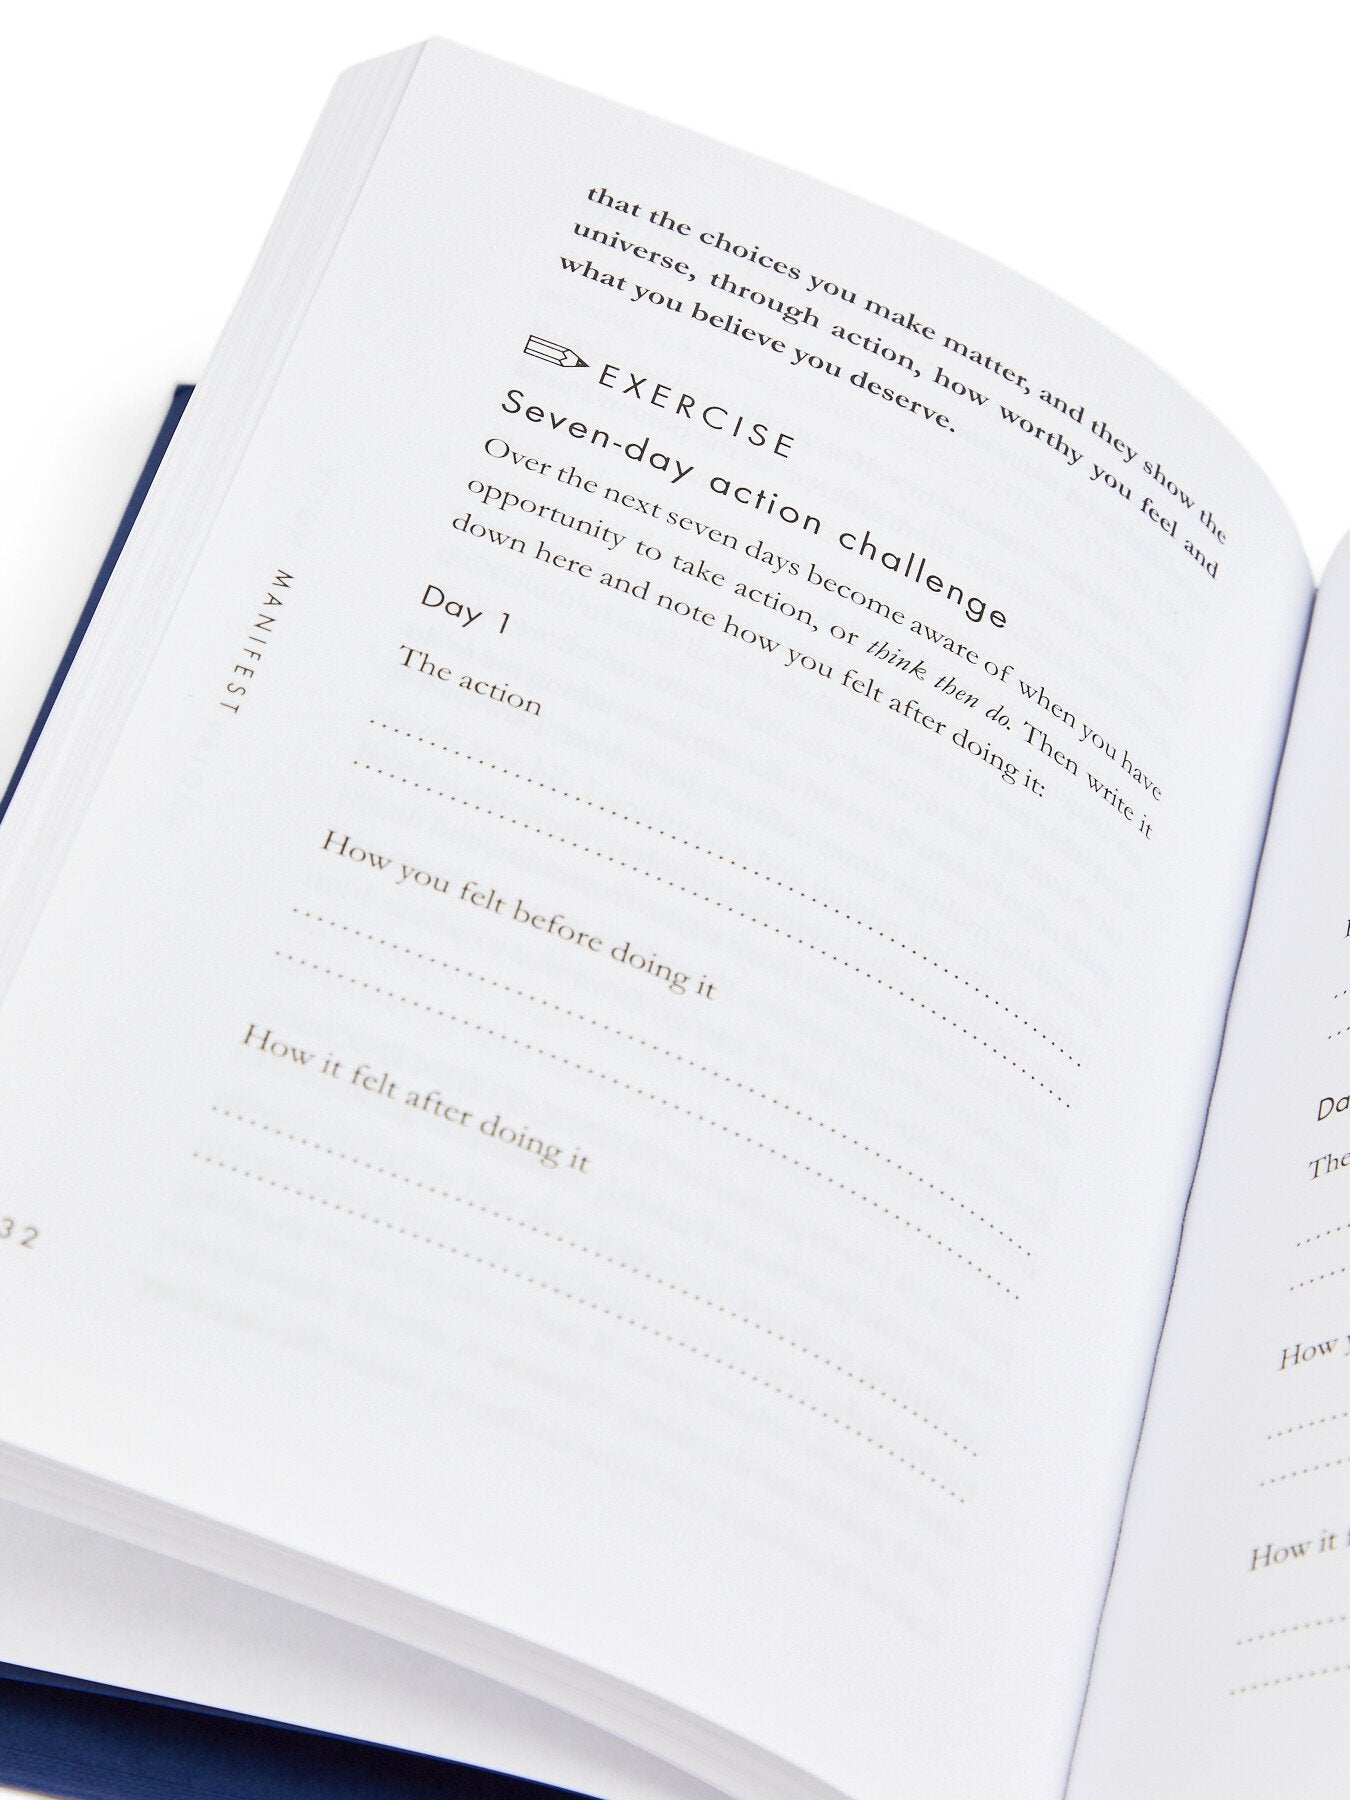 that the choices you make matter, and they show the
universe, through action, how worthy you feel and
what you believe you deserve.
EXERCISE
Seven-day action challenge
Over the next seven days become aware of when you have
opportunity to take action, or think then do. Then write it
down here and note how you felt after doing it:
Day 1
The action
How you felt before doing it
How it felt after doing it
MANIFEST
32
Da
The
How y
How it f